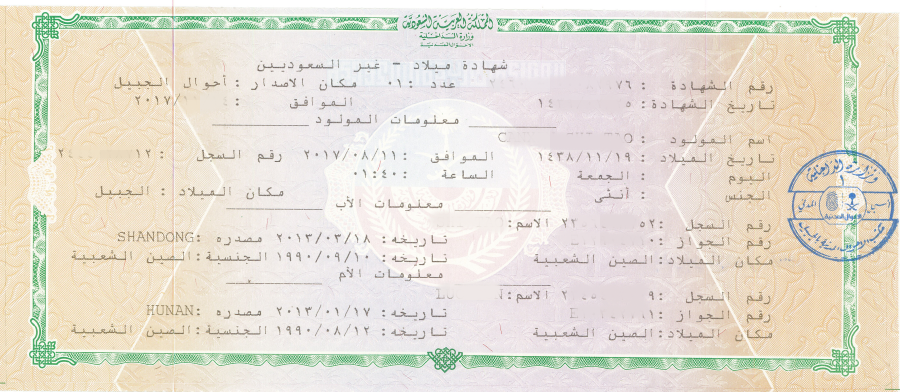 المملكة العربية السعودية
وزارة الداخلية
الأحوال المدنية
شهادة ميلاد - غير السعوديين
رقم الشهادة : ٧٦ عدد : ٠١ مكان الاصدار : أحوال الجبيل
تاريخ الشهادة : ٥ ١٤ الموافق : ٢٠١٧/
معلومات المولود
اسم المولود :
تاريخ الميلاد : ١٤٣٨/١١/١٩ الموافق : ٢٠١٧/٠٨/١١ رقم السجل : ١٢ ٢٤
اليوم : الجمعة الساعة : ٠١:٤٠
الجنس : أنثى مكان الميلاد : الجبيل
معلومات الأب
رقم السجل : ٥٢ ٢٢ الاسم:
رقم الجواز : ٠ تاريخه: ٢٠١٣/٠٣/١٨ مصدره :SHANDONG
مكان الميلاد:الصين الشعبية تاريخه: ١٩٩٠/٠٩/١٠ الجنسية:الصين الشعبية
معلومات الأم
رقم السجل : ٩ ٢ الاسم:
رقم الجواز : ١ تاريخه: ٢٠١٣/٠١/١٧ مصدره :HUNAN
مكان الميلاد:الصين الشعبية تاريخه: ١٩٩٠/٠٨/١٢ الجنسية:الصين الشعبية
وزارة الداخلية
الأحوال المدنية